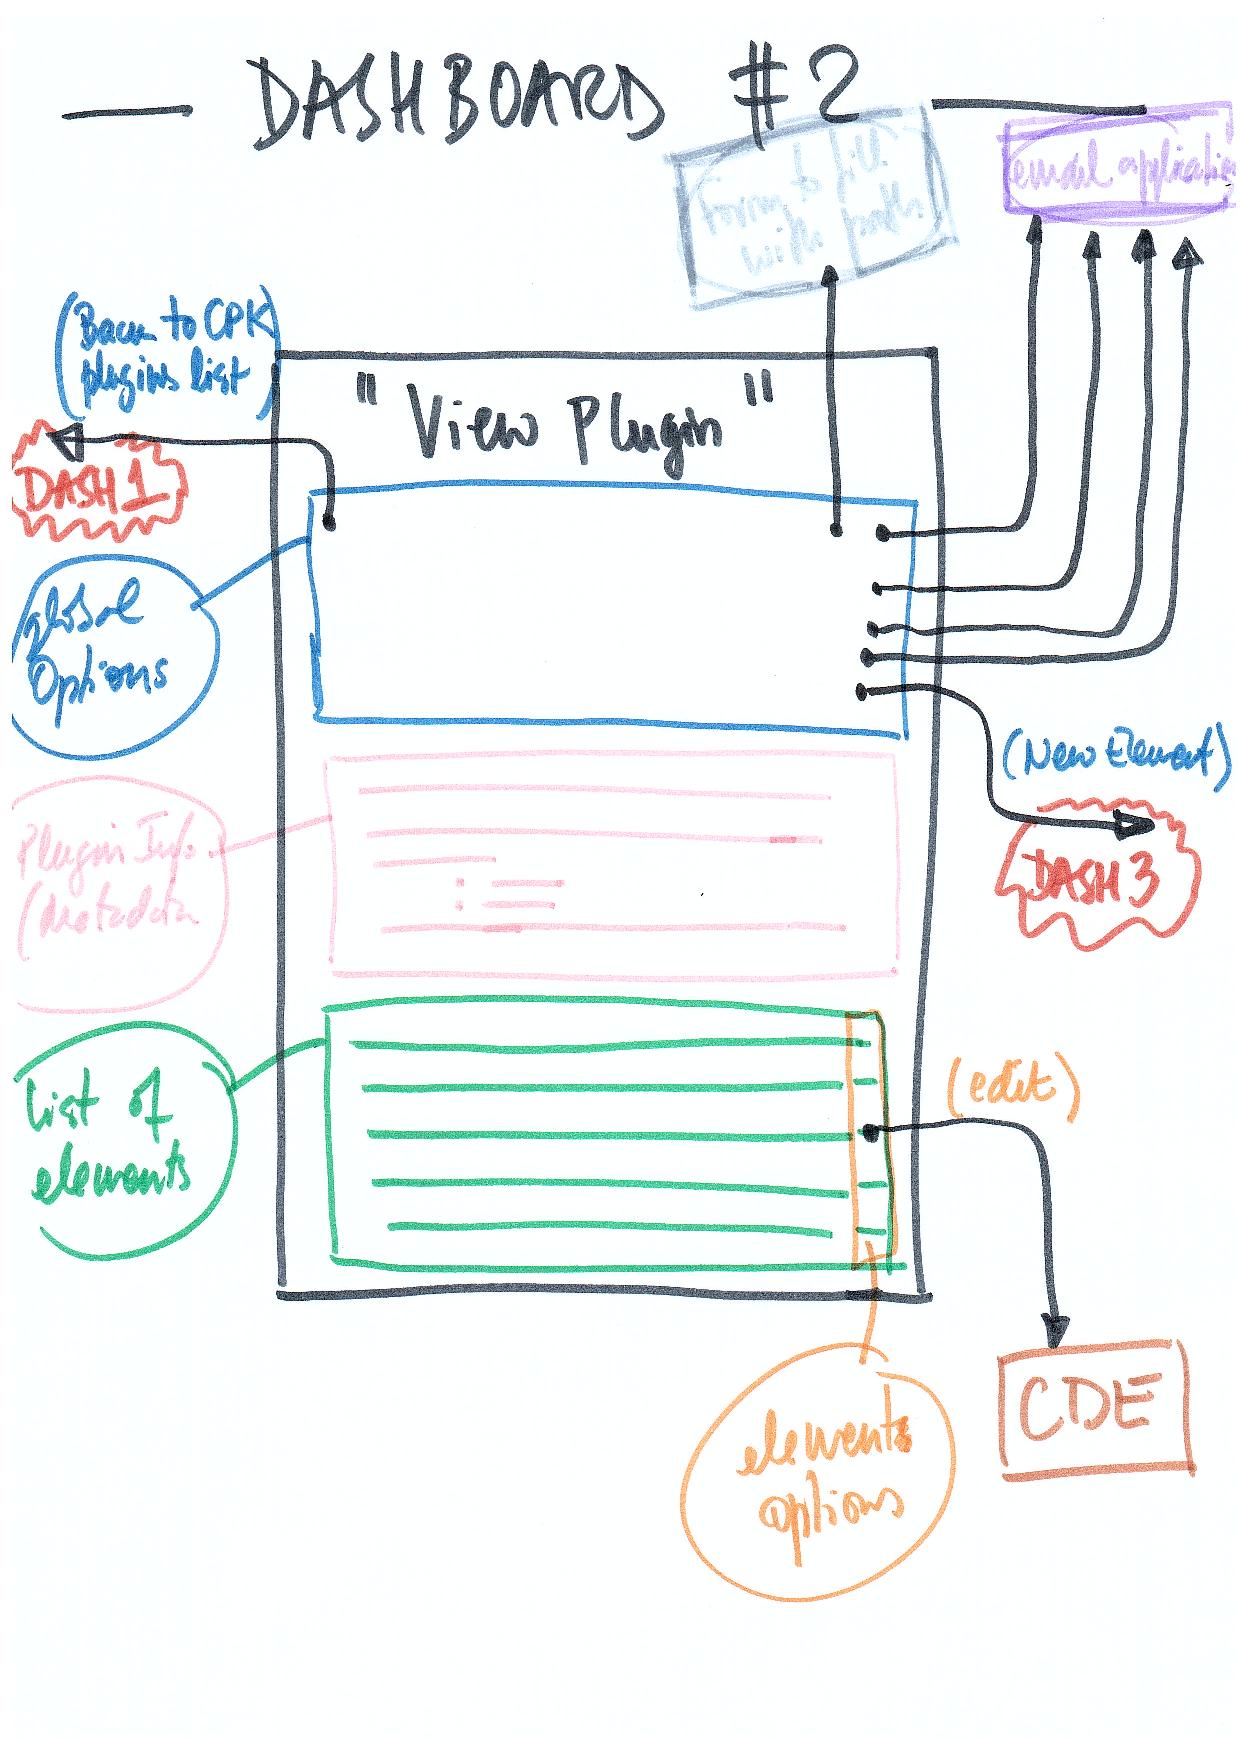 DASHBOARD #2
Form to fill
with path
email application
(Back to CPK
plugins list)
"View Plugin"
DASH 1
global
Options
(New Element)
Plugin Info
(Metadata
DASH 3
List of
elements
(edit)
CDE
elements
options